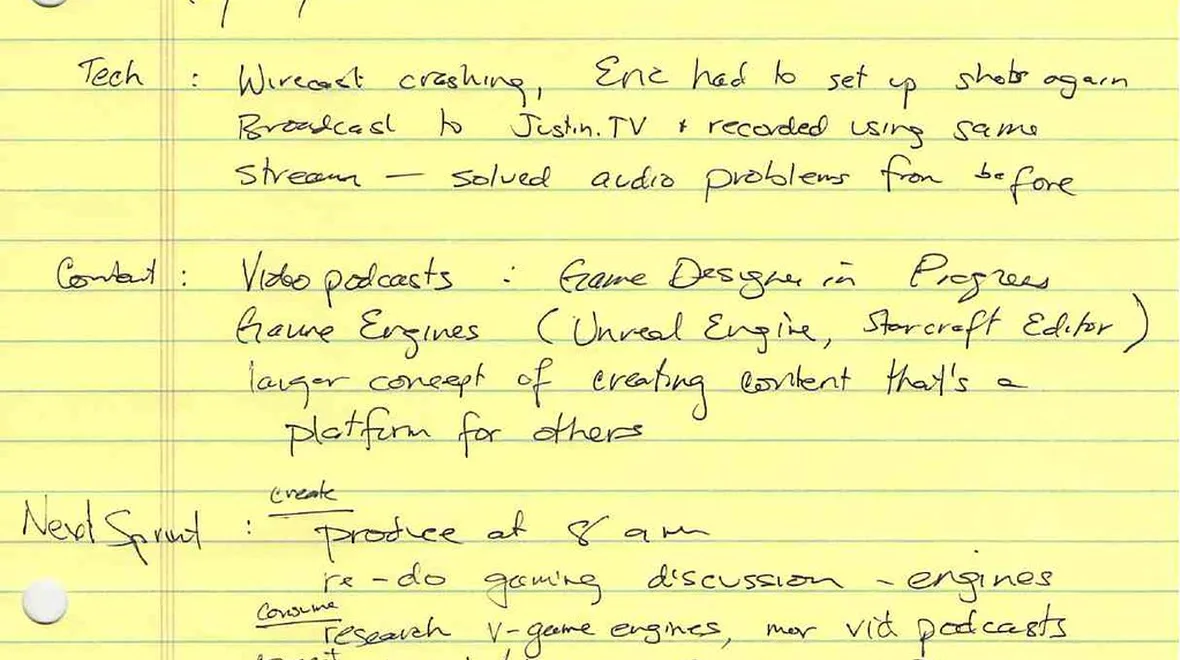 Tech : Wirecast crashing, Eric had to set up shots again
Broadcast to Justin.TV + recorded using same
stream — solved audio problems from before
Content : Video podcasts : Game Designer in Progress
Game Engines (Unreal Engine, Starcraft Editor)
larger concept of creating content that's a
platform for others
create
Next Sprint : produce at 8 am
re-do gaming discussion - engines
consume
research v-game engines, mor vid podcasts